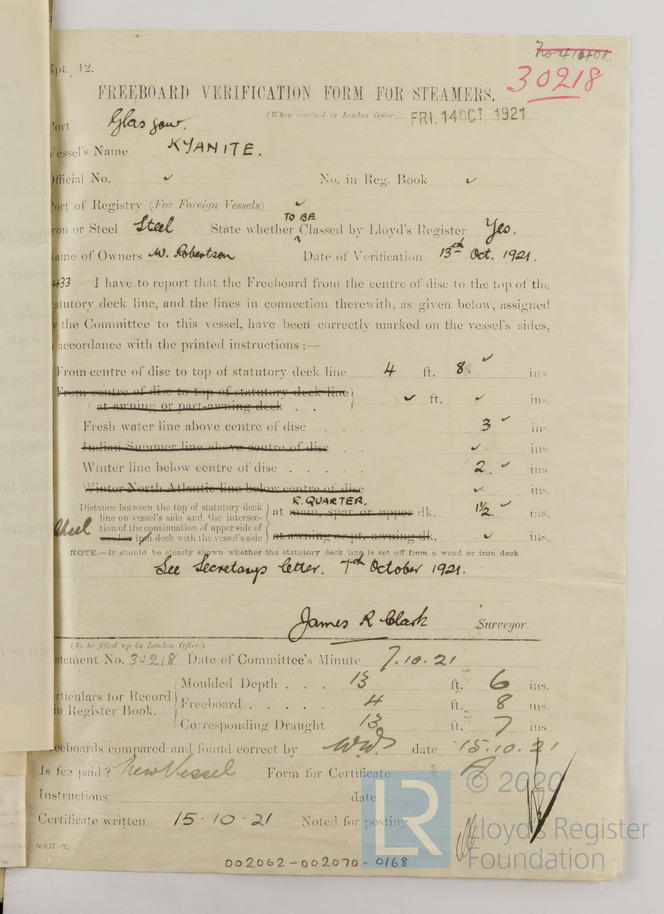 Rpt. 12.
30218
FREEBOARD VERIFICATION FORM FOR STEAMERS.
(When received in London Office FRI. 14 OCT. 1921
Port Glasgow.
Vessel's Name KYANITE.
Official No. ✓ No. in Reg. Book ✓
Port of Registry (For Foreign Vessels) ✓
TO BE
Iron or Steel Steel State whether ^ Classed by Lloyd's Register Yes.
Name of Owners W. Robertson Date of Verification 13th Oct. 1921.
433 I have to report that the Freeboard from the centre of disc to the top of the
statutory deck line, and the lines in connection therewith, as given below, assigned
by the Committee to this vessel, have been correctly marked on the vessel's sides,
accordance with the printed instructions:—
From centre of disc to top of statutory deck line 4 ft. 8 ✓ ins.
From centre of disc to top of statutory deck line
at awning or part-awning deck . . ✓ ft. ✓ ins.
Fresh water line above centre of disc . . 3 ✓ ins.
Indian Summer line above centre of disc ✓ ins.
Winter line below centre of disc . . . . . 2 ✓ ins.
Winter North Atlantic line below centre of disc ✓ ins.
R. QUARTER.
Distance between the top of statutory deck
line on vessel's side and the intersec- at main, spar or upper dk. 1½ ✓ ins.
tion of the continuation of upper side of
Steel iron deck with the vessel's side at awning or pt. awning dk. ✓ ins.
NOTE.—It should be clearly shewn whether the statutory deck line is set off from a wood or iron deck
See Secretarys letter. 7th October 1921.
James R Clark Surveyor
(To be filled up in London Office.)
Statement No. 30218 Date of Committee's Minute 7.10.21
Moulded Depth . . . 13 ft. 6 ins.
Particulars for Record
in Register Book. Freeboard . . . . . 4 ft. 8 ins.
Corresponding Draught 13 ft. 7 ins.
Freeboards compared and found correct by date 15.10.21
Is fee paid? New Vessel Form for Certificate
Instructions date
Certificate written 15.10.21 Noted for posting
002062-002070-0168
LR © 2020
Lloyd's Register
Foundation